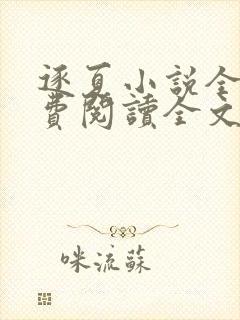 逐夏小説全
費閱讀全文
咪流蘇